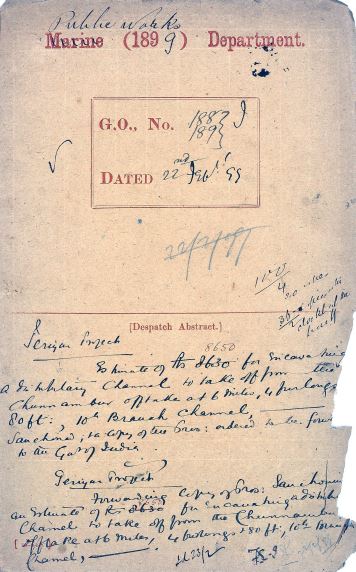 Public Works
Marine (1899) Department.
G.O., No. 188 } I
189 }
DATED 22nd Feb' 99
22/2/99
[Despatch Abstract.]
Periyar Project
8650
Estimate of Rs 8630 for Excavating
a distributary Channel to take off from the
offtake at 6 miles, 4 furlongs
80 ft; 10th Branch Channel,
Sanctioned; to copy of the Pros: ordered to be forw
to the Govt of India
Periyar Project
Forwarding copy of Pros: Sanctioning
an Estimate of Rs 8630 for Excavating a distr
Channel to take off from the
offtake at 6 miles, 4 furlongs 80 ft, 10th Branch
Channel,
23/2